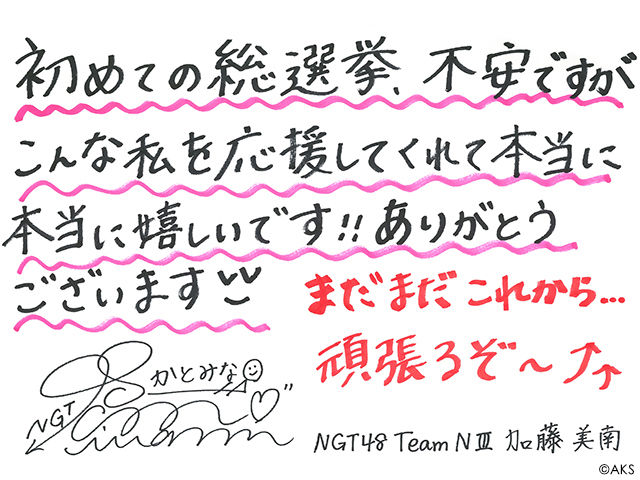 初めての総選挙、不安ですが
こんな私を応援してくれて本当に
本当に嬉しいです!!ありがとう
ございます
まだまだこれから...
頑張るぞ〜
かとみな
NGT
NGT48 Team NⅢ 加藤美南
©AKS